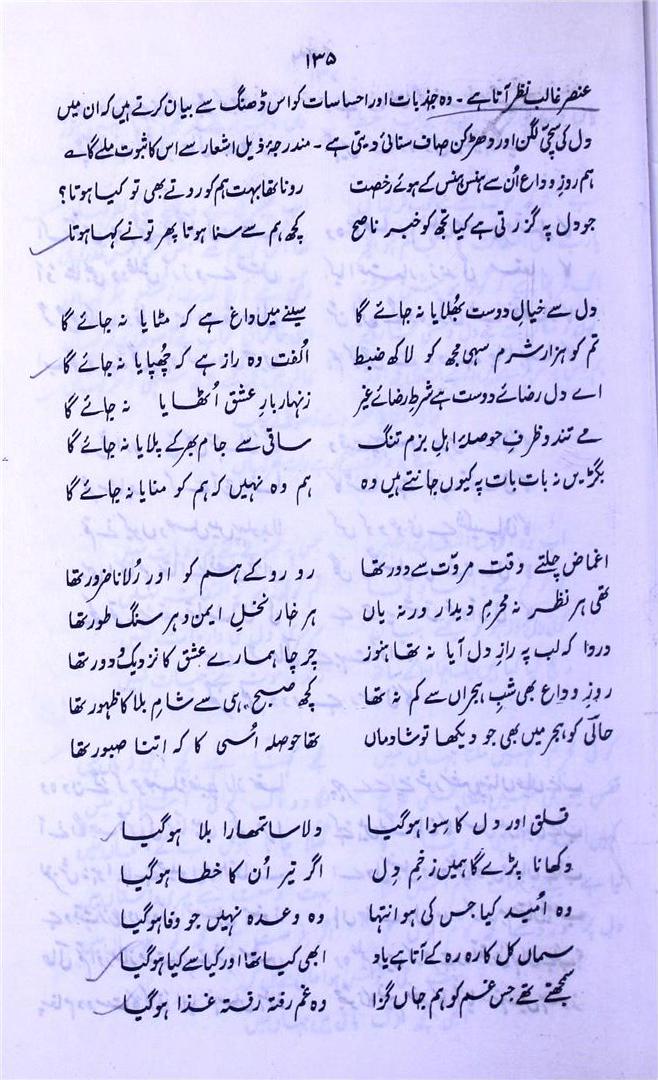 ۱۳۵
عنصر غالب نظر آتا ہے۔ وہ جذبات اور احساسات کو اس ڈھنگ سے بیان کرتے ہیں کہ ان میں
دل کی سچی لگن اور دھڑکن صاف سنائی دیتی ہے۔ مندرجۂ ذیل اشعار سے اس کا ثبوت ملے گا ے
ہم روزِ وداع اُن سے ہنس ہنس کے ہوئے رخصت رونا تھا بہت ہم کو روتے بھی تو کیا ہوتا؟
جو دل پہ گزرتی ہے کیا تجھ کو خبر ناصح کچھ ہم سے سنا ہوتا پھر تو نے کہا ہوتا
دل سے خیالِ دوست بھُلایا نہ جائے گا سینے میں داغ ہے کہ مٹایا نہ جائے گا
تم کو ہزار شرم سہی مجھ کو لاکھ ضبط اُلفت وہ راز ہے کہ چُھپایا نہ جائے گا
اے دل رضائے دوست ہے شرطِ رضائے غیر زنہار بارِ عشق اُٹھایا نہ جائے گا
مے تند و ظرفِ حوصلۂ اہلِ بزم تنگ ساقی سے جام بھر کے پلایا نہ جائے گا
بگڑیں نہ بات بات پہ کیوں جانتے ہیں وہ ہم وہ نہیں کہ ہم کو منایا نہ جائے گا
اغماض چلتے وقت مروّت سے دور تھا رو رو کے ہم کو اور رُلانا ضرور تھا
تھی ہر نظر نہ محرمِ دیدار ورنہ یاں ہر خار نخلِ ایمن و ہر سنگ طور تھا
دروا کہ لب پہ رازِ دل آیا نہ تھا ہنوز چرچا ہمارے عشق کا نزدیک و دور تھا
روزِ وداع بھی شبِ ہجراں سے کم نہ تھا کچھ صبح ہی سے شامِ بلا کا ظہور تھا
حالیؔ کو ہجر میں بھی جو دیکھا تو شادماں تھا حوصلہ اُسی کا کہ اتنا صبور تھا
قلق اور دل کا سوا ہو گیا دلاسا تمھارا بلا ہو گیا
دکھانا پڑے گا ہمیں زخمِ دل اگر تیر اُن کا خطا ہو گیا
وہ اُمید کیا جس کی ہو انتہا وہ وعدہ نہیں جو وفا ہو گیا
سماں کل کا رہ رہ کے آتا ہے یاد ابھی کیا تھا اور کیا سے کیا ہو گیا
سمجھتے تھے جس غم کو ہم جاں گزا وہ غم رفتہ رفتہ غذا ہو گیا